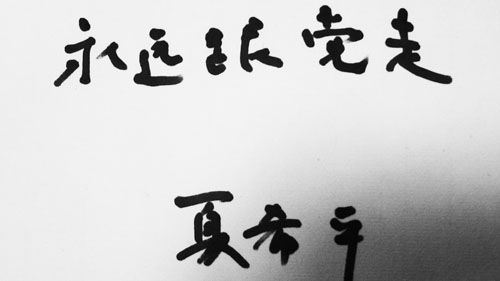 永远跟党走
夏希平